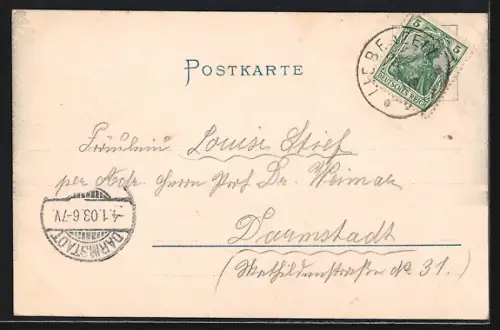 POSTKARTE
5 5
DEUTSCHES REICH
Fräulein Louise Stief
per Adr. Herrn Prof. Dr. Weimar
Darmstadt
(Mathildenstraße No 31.)
-4.1.03.6-7V.
DARMSTADT